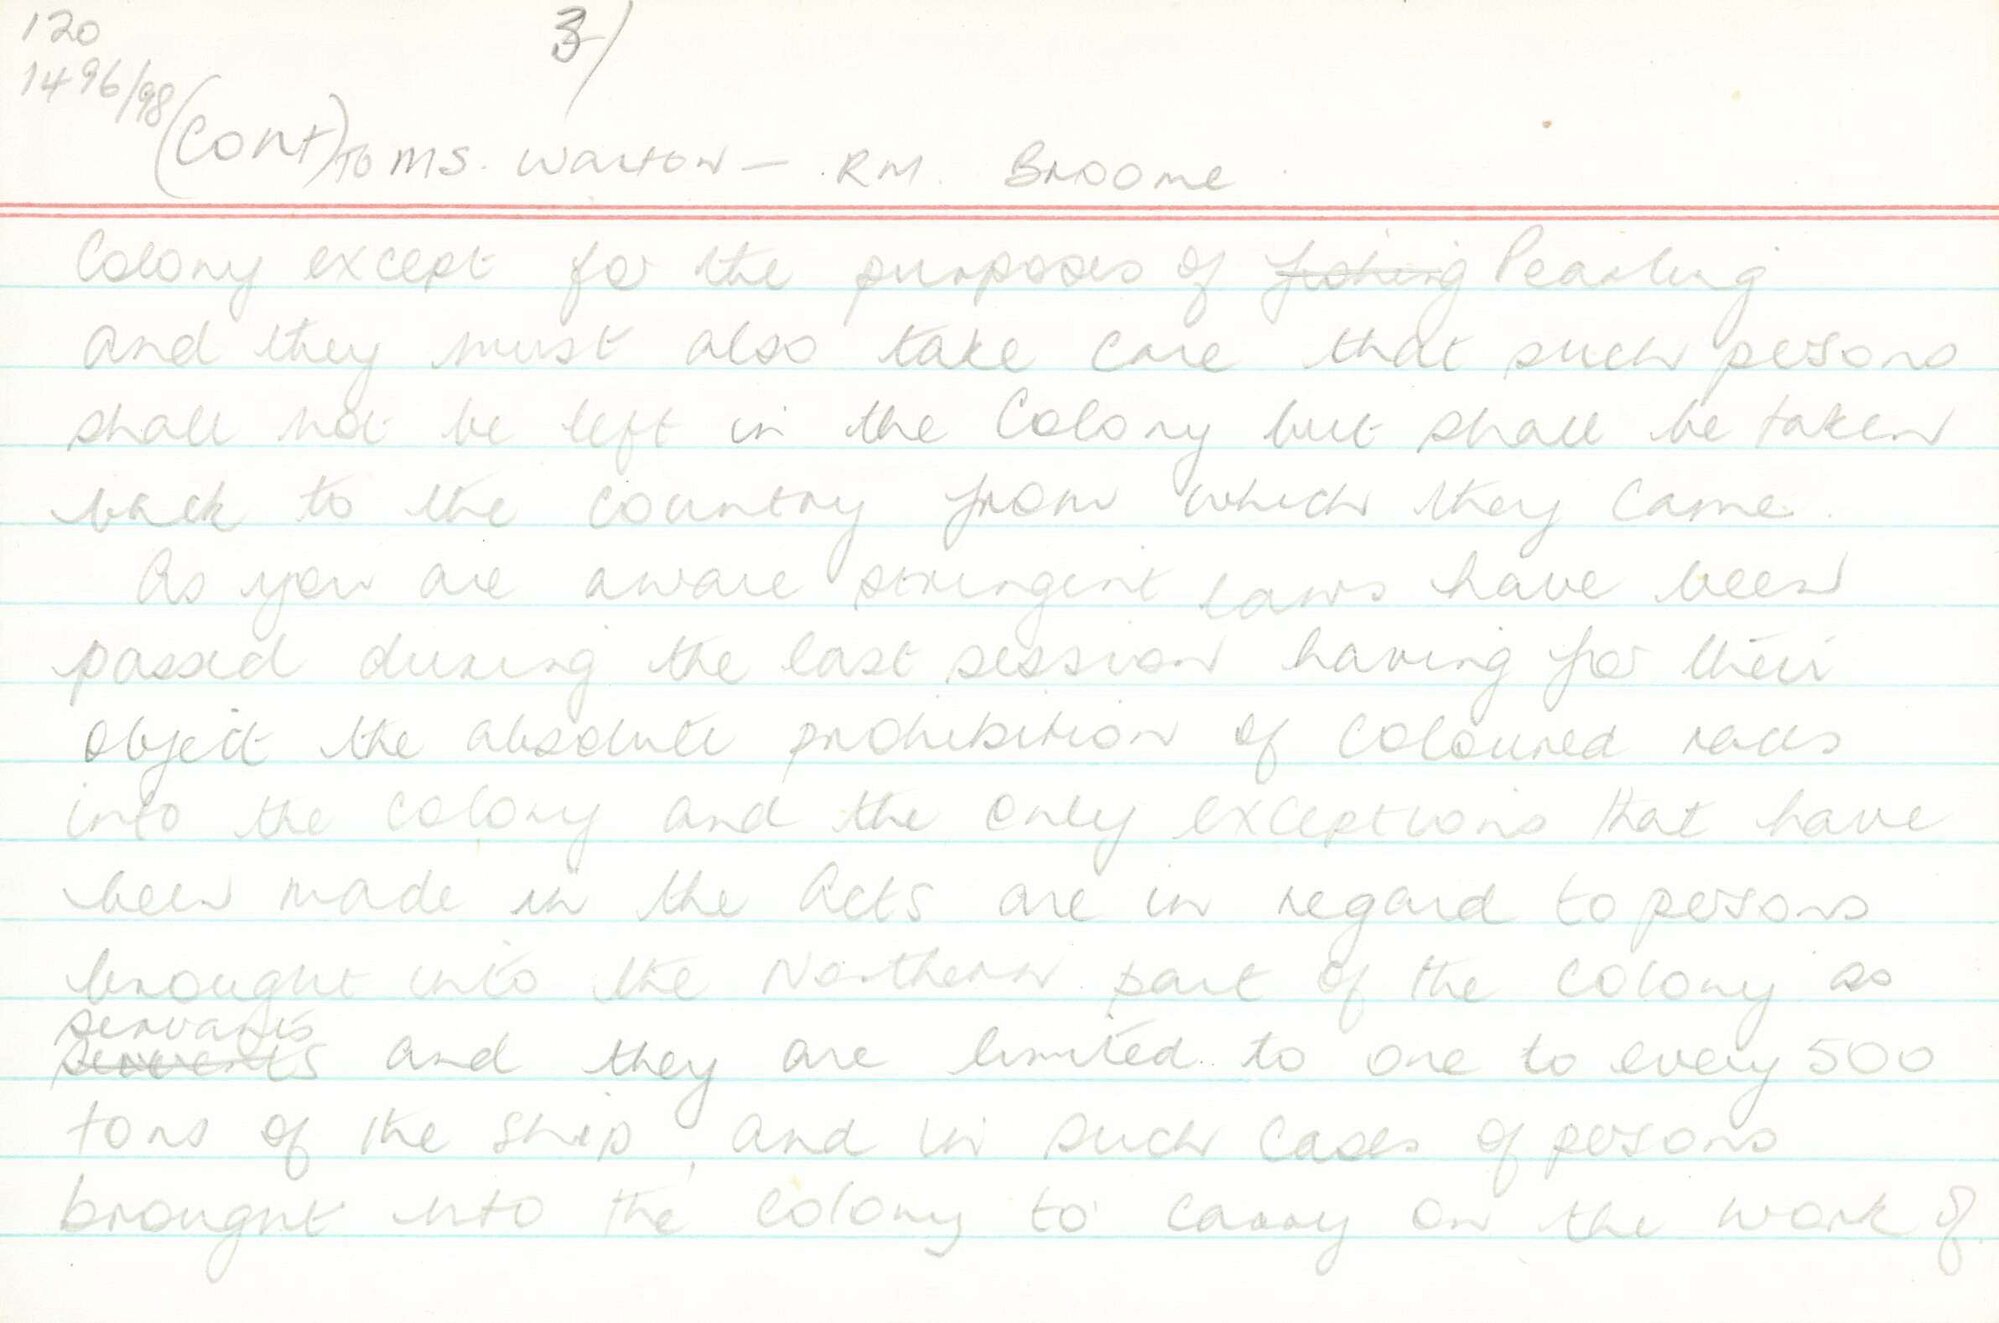 120
3/
1496/98
(Cont) To M.S. Warton – R.M. Broome
Colony except for the purposes of fishing Pearling
and they must also take care that such persons
shall not be left in the Colony but shall be taken
back to the country from which they came.
As you are aware stringent laws have been
passed during the last session having for their
object the absolute prohibition of coloured races
into the colony and the only exceptions that have
been made in the Acts are in regard to persons
brought into the Northern part of the Colony as
servants
servents and they are limited to one to every 500
tons of the ship, and in such cases of persons
brought into the colony to carry on the work of